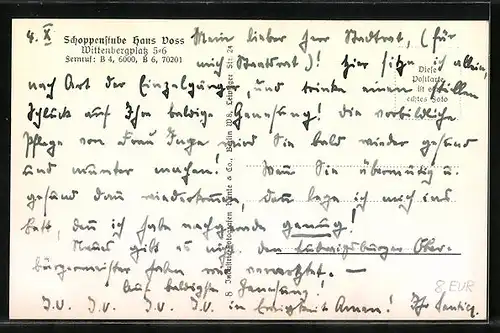 4. X
Schoppenstube Hans Voss
Wittenbergplatz 5-6
Fernruf: B 4, 6000, B 6, 70201
Mein lieber Herr Stadtrat, (für
mich Staatsrat)! Hier sitze ich allein,
nach Art der Einzelgänger, und trinke einen stillen
Schluck auf Ihre baldige Genesung! Die vorbildliche
Pflege von Frau Inge wird Sie bald wieder gesund
und munter machen! Wenn Sie übermütig u.
gesund dann wiederkommen, dann lege ich mich ins
Bett, denn ich habe nachgerade genug!
Neues gibt es nicht. Den Ludwigsburger Ober-
bürgermeister haben wir verarztet. —
Auf baldigste Genesung!
I.V. I.V. I.V. I.V. in Ewigkeit Amen! Ihr
Diese
Postkarte
ist ein
echtes Foto
Berlin W8, Leipziger Str. 24
8 EUR